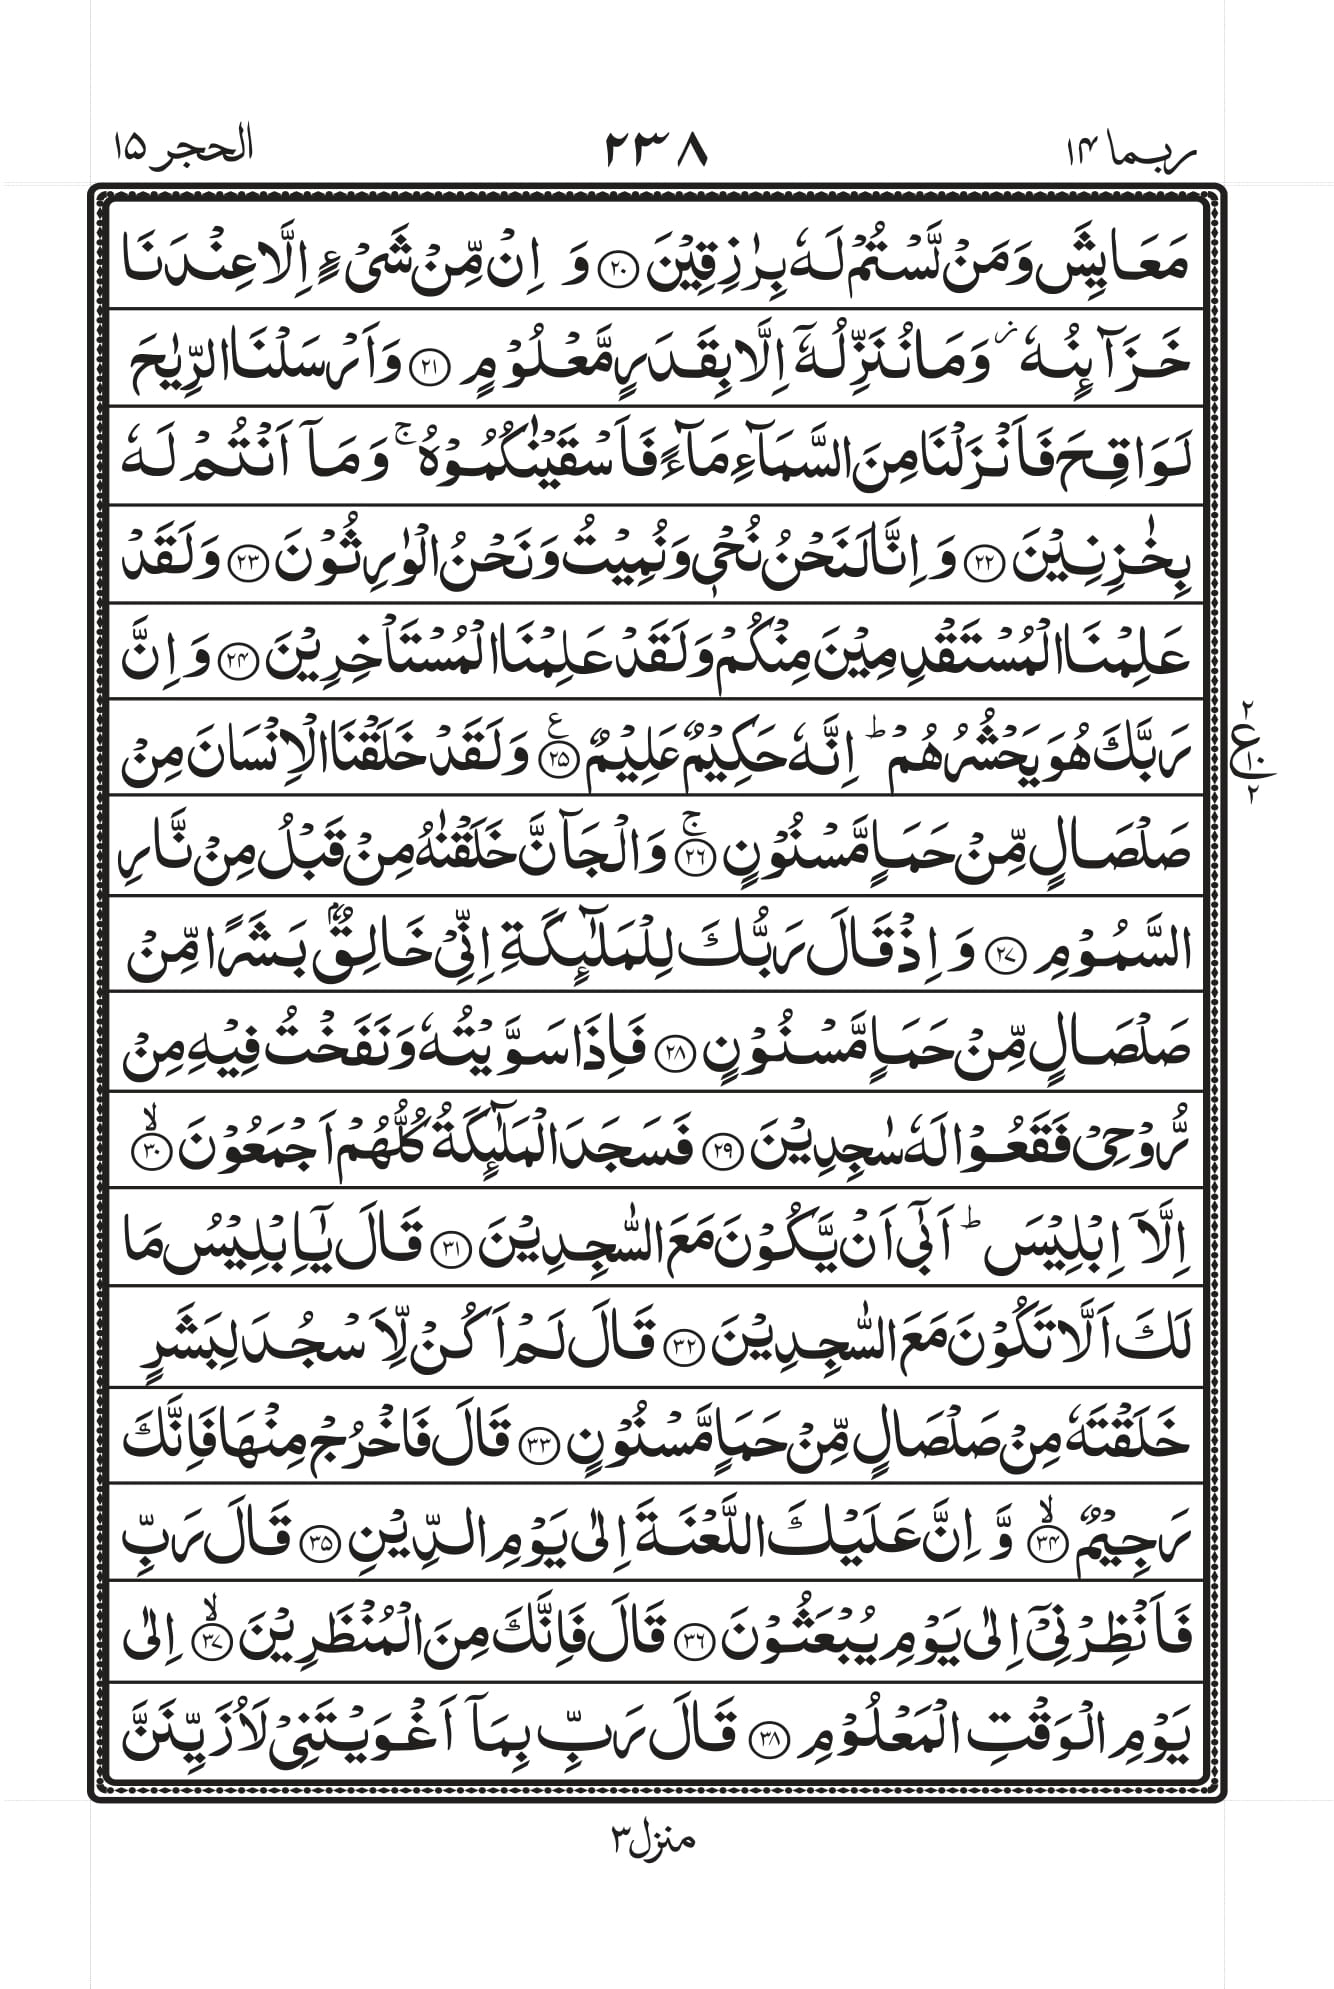 ربما ۱۴
۲۳۸
الحجر ۱۵
مَعَايِشَ وَمَنْ لَّسْتُمْ لَهٗ بِرٰزِقِيْنَ ۝۲۰ وَ اِنْ مِّنْ شَىْءٍ اِلَّا عِنْدَنَا
خَزَآىِٕنُهٗ ز وَمَا نُنَزِّلُهٗۤ اِلَّا بِقَدَرٍ مَّعْلُوْمٍ ۝۲۱ وَاَرْسَلْنَا الرِّيٰحَ
لَوَاقِحَ فَاَنْزَلْنَا مِنَ السَّمَآءِ مَآءً فَاَسْقَيْنٰكُمُوْهُ ۚ وَمَاۤ اَنْتُمْ لَهٗ
بِخٰزِنِيْنَ ۝۲۲ وَ اِنَّا لَنَحْنُ نُحْىٖ وَنُمِيْتُ وَنَحْنُ الْوٰرِثُوْنَ ۝۲۳ وَلَقَدْ
عَلِمْنَا الْمُسْتَقْدِمِيْنَ مِنْكُمْ وَلَقَدْ عَلِمْنَا الْمُسْتَاْخِرِيْنَ ۝۲۴ وَ اِنَّ
رَبَّكَ هُوَ يَحْشُرُهُمْ ؕ اِنَّهٗ حَكِيْمٌ عَلِيْمٌ ۝۲۵ ع وَلَقَدْ خَلَقْنَا الْاِنْسَانَ مِنْ
۲
ع
۱۰
۲
صَلْصَالٍ مِّنْ حَمَاٍ مَّسْنُوْنٍ ۝۲۶ ۚ وَالْجَآنَّ خَلَقْنٰهُ مِنْ قَبْلُ مِنْ نَّارِ
السَّمُوْمِ ۝۲۷ وَ اِذْ قَالَ رَبُّكَ لِلْمَلٰٓىِٕكَةِ اِنِّىْ خَالِقٌۢ بَشَرًا مِّنْ
صَلْصَالٍ مِّنْ حَمَاٍ مَّسْنُوْنٍ ۝۲۸ فَاِذَا سَوَّيْتُهٗ وَنَفَخْتُ فِيْهِ مِنْ
رُّوْحِىْ فَقَعُوْا لَهٗ سٰجِدِيْنَ ۝۲۹ فَسَجَدَ الْمَلٰٓىِٕكَةُ كُلُّهُمْ اَجْمَعُوْنَ ۝۳۰ ۙ
اِلَّاۤ اِبْلِيْسَ ؕ اَبٰٓى اَنْ يَّكُوْنَ مَعَ السّٰجِدِيْنَ ۝۳۱ قَالَ يٰۤاِبْلِيْسُ مَا
لَكَ اَلَّا تَكُوْنَ مَعَ السّٰجِدِيْنَ ۝۳۲ قَالَ لَمْ اَكُنْ لِّاَسْجُدَ لِبَشَرٍ
خَلَقْتَهٗ مِنْ صَلْصَالٍ مِّنْ حَمَاٍ مَّسْنُوْنٍ ۝۳۳ قَالَ فَاخْرُجْ مِنْهَا فَاِنَّكَ
رَجِيْمٌ ۝۳۴ ۙ وَّ اِنَّ عَلَيْكَ اللَّعْنَةَ اِلٰى يَوْمِ الدِّيْنِ ۝۳۵ قَالَ رَبِّ
فَاَنْظِرْنِىْۤ اِلٰى يَوْمِ يُبْعَثُوْنَ ۝۳۶ قَالَ فَاِنَّكَ مِنَ الْمُنْظَرِيْنَ ۝۳۷ ۙ اِلٰى
يَوْمِ الْوَقْتِ الْمَعْلُوْمِ ۝۳۸ قَالَ رَبِّ بِمَاۤ اَغْوَيْتَنِىْ لَاُزَيِّنَنَّ
منزل۳